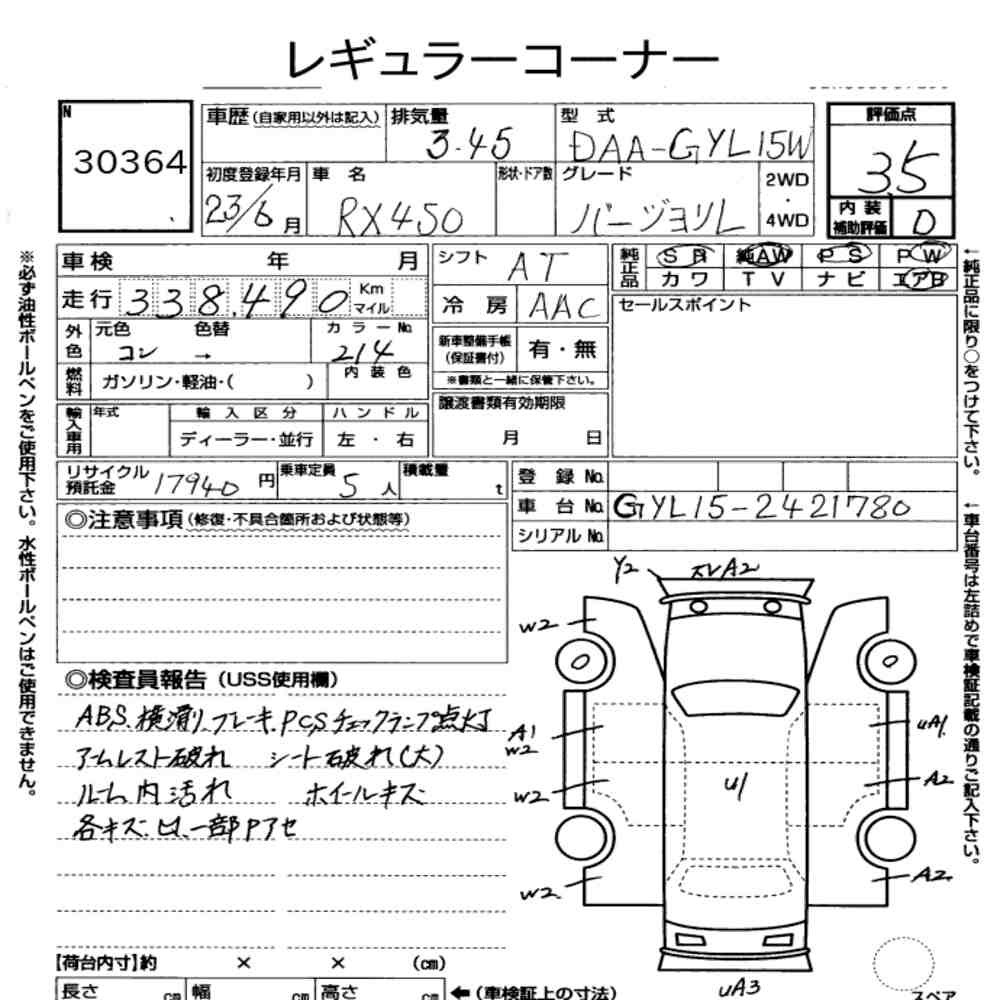 レギュラーコーナー
N
30364
車歴 (自家用以外は記入)
排気量
3.45
型式
DAA-GYL15W
評価点
3.5
初度登録年月
23/6月
車名
RX450
形状・ドア数
グレード
バージョンL
2WD
・
4WD
内装
補助評価
D
車検 年 月
走行 338,490 Km マイル
シフト
AT
冷房
AAC
純正品
SR 純AW PS PW
カワ TV ナビ エアB
セールスポイント
外色
元色 色替
コン →
カラーNo.
214
燃料
ガソリン・軽油・( )
内装色
新車整備手帳
(保証書付)
有・無
※書類と一緒に保管下さい。
輸入車用
年式
輸入区分
ディーラー・並行
ハンドル
左・右
譲渡書類有効期限
月 日
リサイクル
預託金
17940円
乗車定員
5人
積載量
t
登録No.
車台No. GYL15-2421780
シリアルNo.
◎注意事項 (修復・不具合箇所および状態等)
◎検査員報告 (USS使用欄)
ABS.横滑り.ブレーキ.PCSチェックランプ点灯
アームレスト破れ シート破れ(大)
ルーム内汚れ ホイールキズ
各キズ.凹.一部Pアセ
Y2
スレA2
W2
A1
W2
W2
W2
U1
UA1
A2
A2
UA3
【荷台内寸】約 × × (cm)
長さ cm 幅 cm 高さ cm
←(車検証上の寸法)
スペア
※必ず油性ボールペンをご使用下さい。水性ボールペンはご使用できません。
←純正品に限り○をつけて下さい。
←車台番号は左詰めで車検証記載の通りご記入下さい。